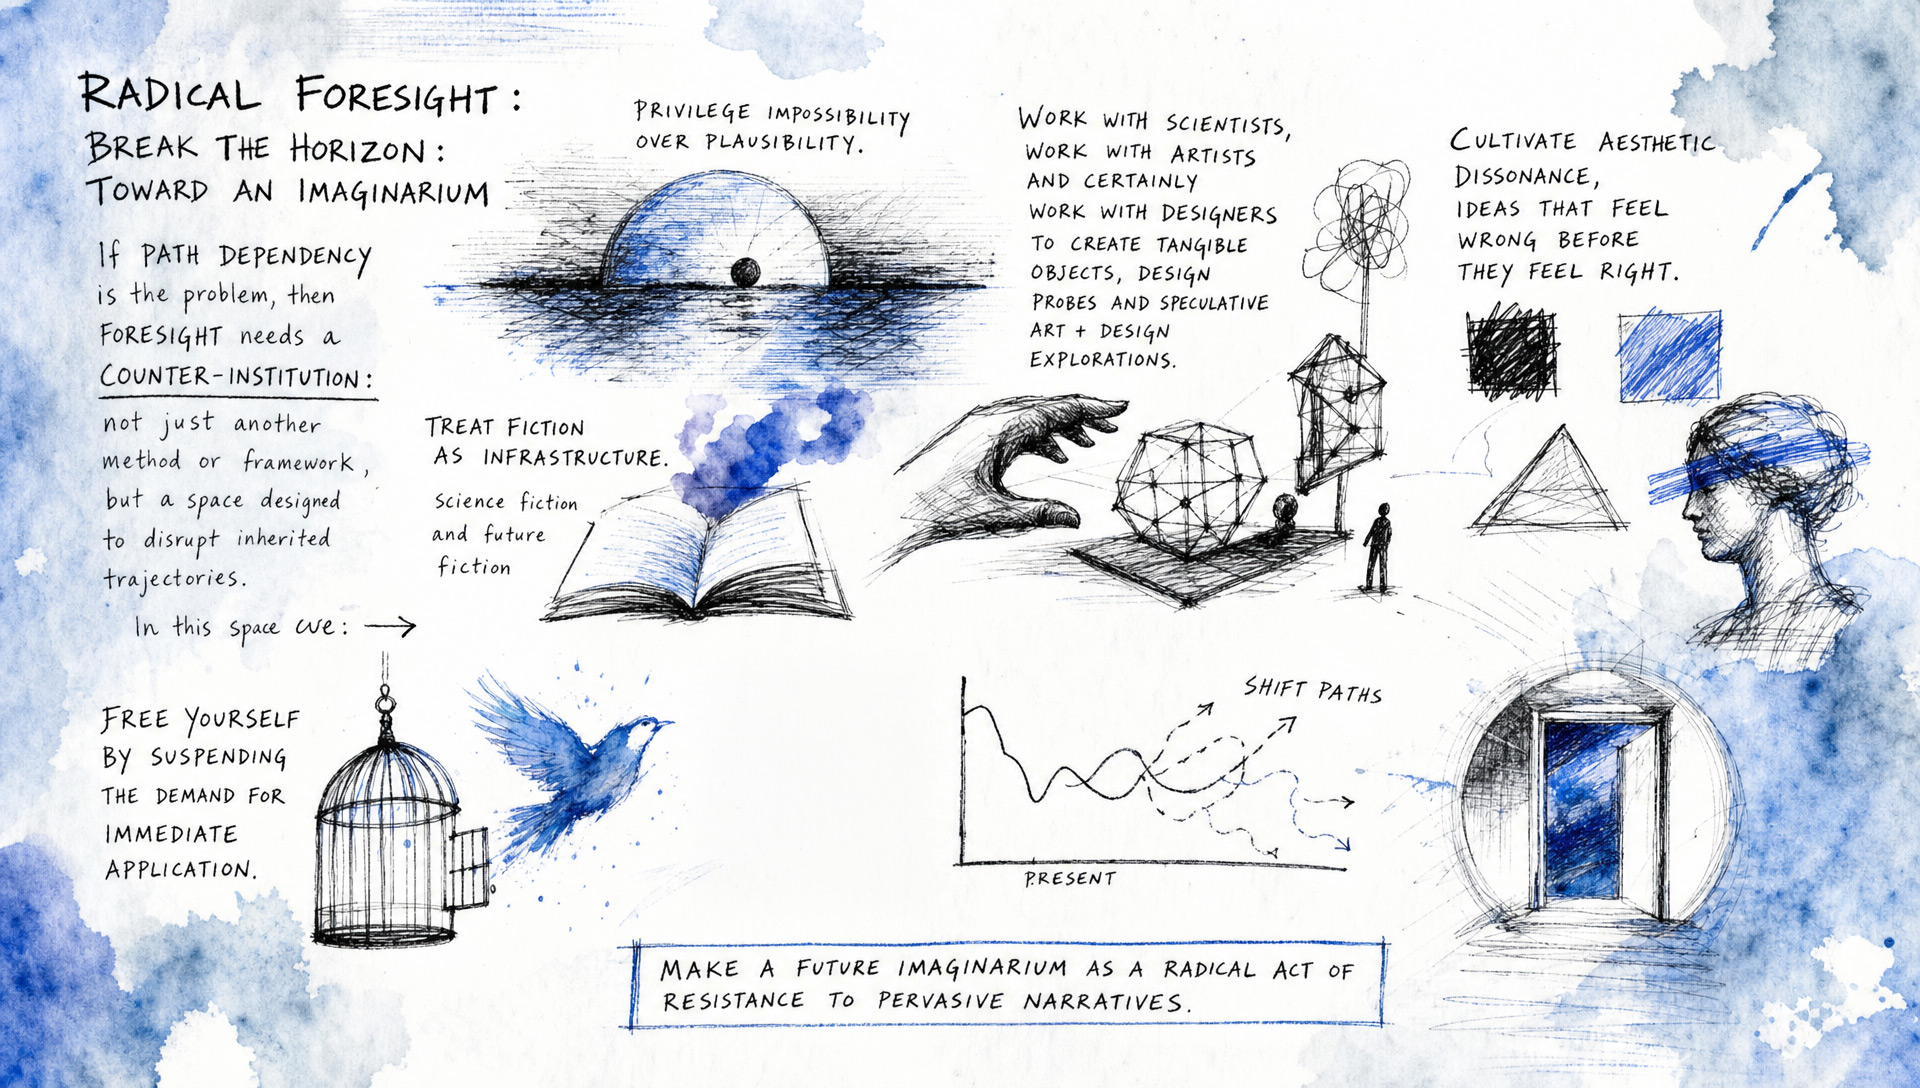 RADICAL FORESIGHT:
BREAK THE HORIZON:
TOWARD AN IMAGINARIUM
If PATH DEPENDENCY
is the problem, then
FORESIGHT needs a
COUNTER-INSTITUTION:
not just another
method or framework,
but a space designed
to disrupt inherited
trajectories.
In this space we: →
FREE YOURSELF
BY SUSPENDING
THE DEMAND FOR
IMMEDIATE
APPLICATION.
PRIVILEGE IMPOSSIBILITY
OVER PLAUSIBILITY.
TREAT FICTION
AS INFRASTRUCTURE.
Science fiction
and future
fiction
WORK WITH SCIENTISTS,
WORK WITH ARTISTS
AND CERTAINLY
WORK WITH DESIGNERS
TO CREATE TANGIBLE
OBJECTS, DESIGN
PROBES AND SPECULATIVE
ART + DESIGN
EXPLORATIONS.
CULTIVATE AESTHETIC
DISSONANCE,
IDEAS THAT FEEL
WRONG BEFORE
THEY FEEL RIGHT.
SHIFT PATHS
PRESENT
MAKE A FUTURE IMAGINARIUM AS A RADICAL ACT OF
RESISTANCE TO PERVASIVE NARRATIVES.